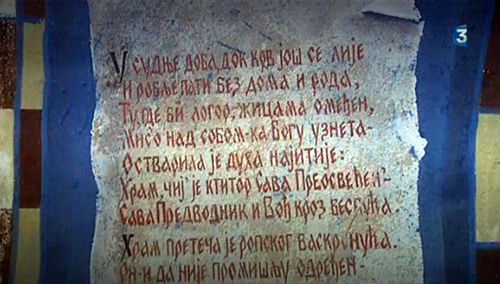 У судње доба док крв још се лије
И робље пати без дома и рода,
Ту где би логор, жицама омеђен,
Мисо над собом - ка Богу узнета -
Остварила је духа најитије:
Храм чиј је ктитор Сава Преосвећенъ
Сава Предводник и Вођ кроз беспућа.
Храм претеча је ропског васкрснућа.
Он - и да није промишљу одређен -
3